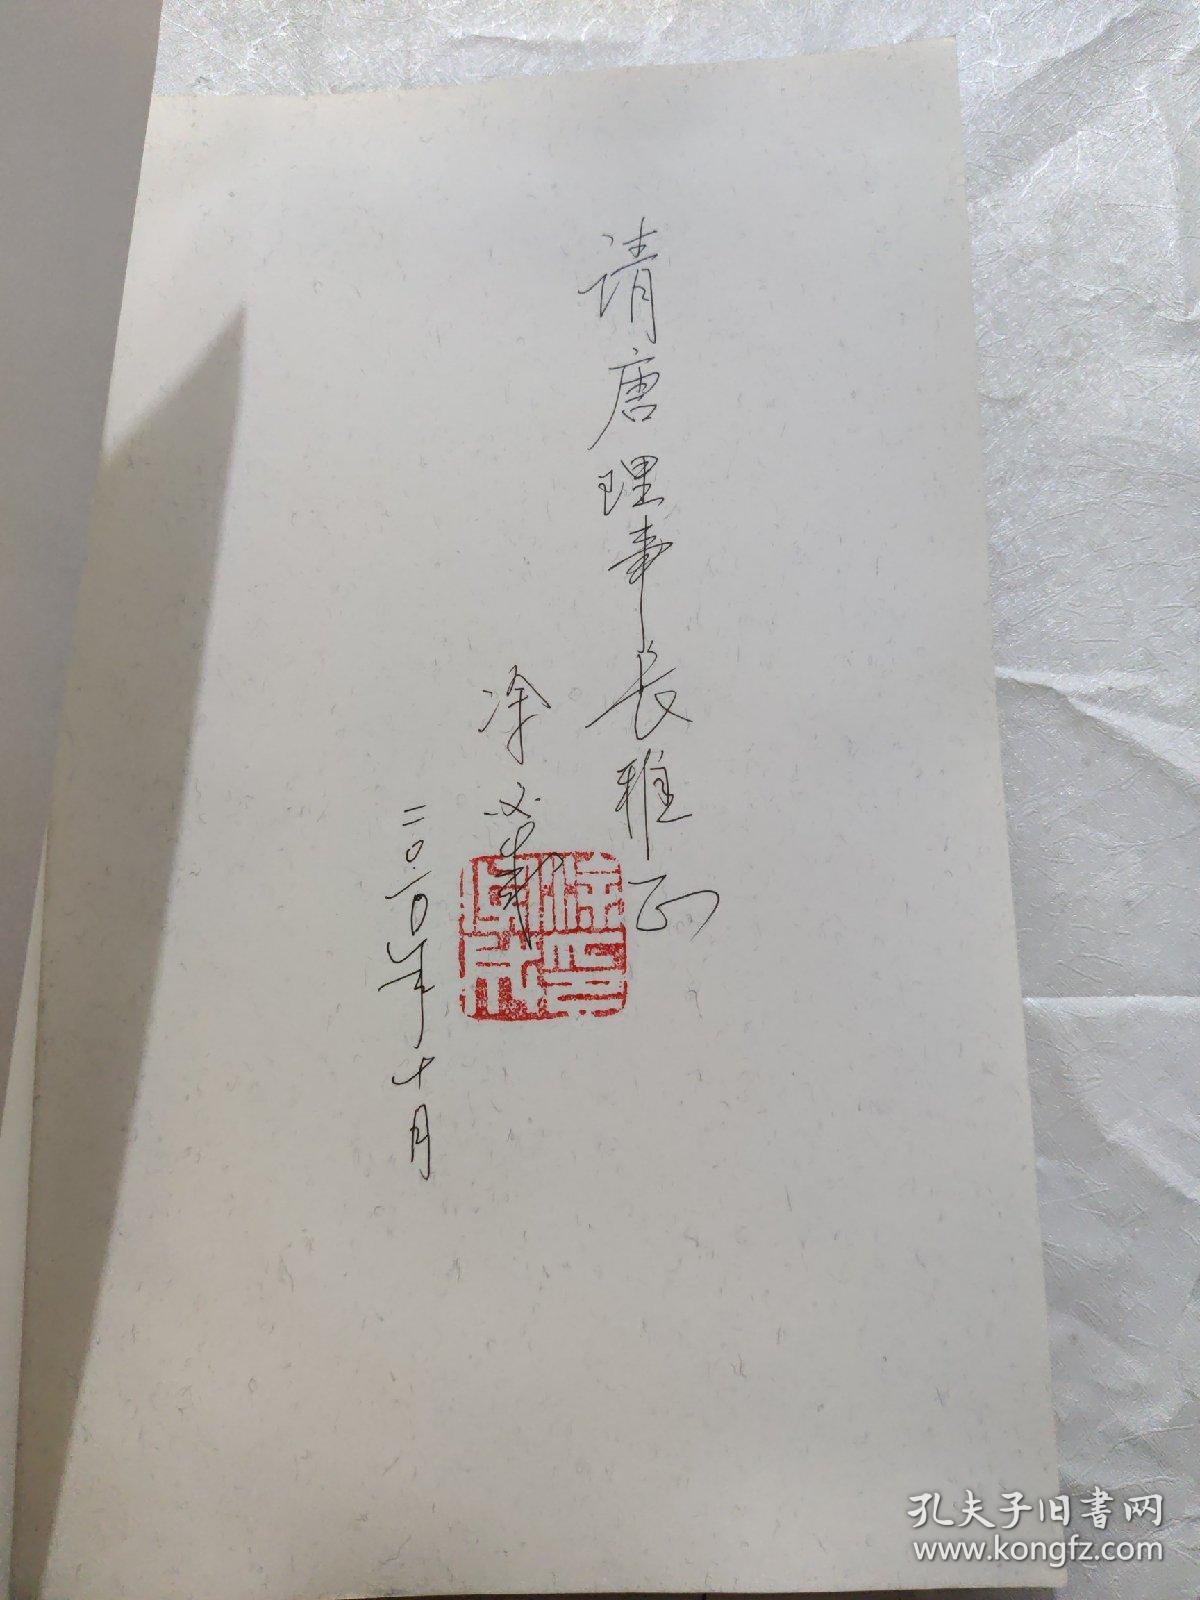 请唐理事长雅正
涂
二〇一〇年十月
孔夫子旧書网
www.kongfz.com